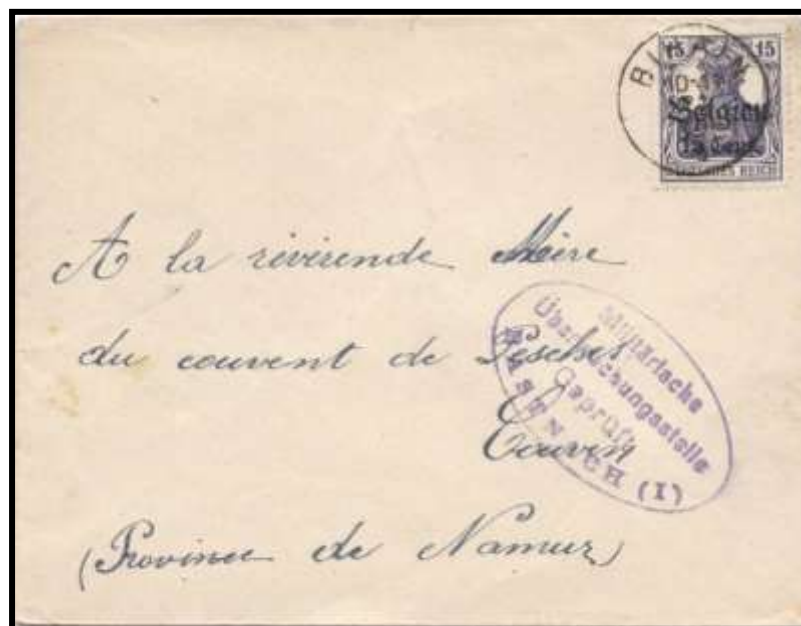 15 15
BIHAIN
10-11
Belgien
15 Cent.
DEUTSCHES REICH
A la révérende Mère
du couvent de Pesches
Couvin
(Province de Namur)
Militärische
Überwachungsstelle
Geprüft
BASTNACH (I)